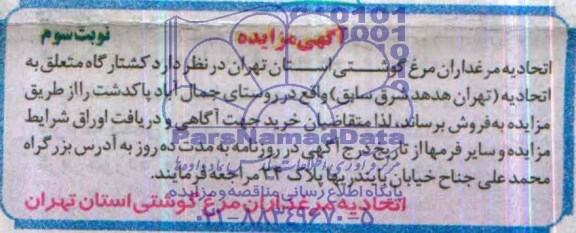 آگهی مزایده
نوبت سوم
اتحادیه مرغداران مرغ گوشتی استان تهران در نظر دارد کشتارگاه متعلق به
اتحادیه (تهران هدهد شرق سابق) واقع در روستای جمال آباد پاکدشت را از طریق
مزایده به فروش برساند، لذا متقاضیان خرید جهت آگاهی و دریافت اوراق شرایط
مزایده و سایر فرمها از تاریخ درج آگهی در روزنامه به مدت ده روز به آدرس بزرگراه
محمد علی جناح خیابان پلاک ۲۴ مراجعه فرمایند.
اتحادیه مرغداران مرغ گوشتی استان تهران
ParsNamadData
پایگاه اطلاع رسانی مناقصه و مزایده
۰۲۱-۸۸۳۴۹۶۷۰-۵